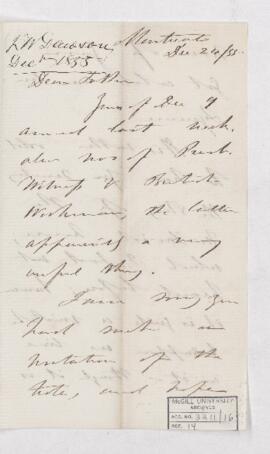 J W Dawson
Decr 1855
Montreal
Dec 24/55.
Dear Father
Yours of Dec 9
arrived last week.
also nos of Presb.
Witness & British
Workman, the latter
apparently a very
useful thing.
I was sorry you
had
of the
note, and hope
McGILL UNIVERSITY
ARCHIVES
ACC. NO. 3211/16
REF. 14